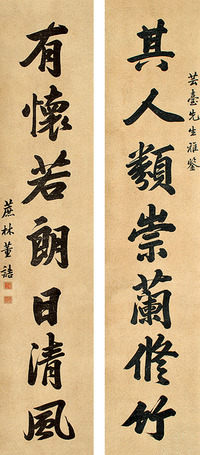 芸臺先生雅鑒
其人類崇蘭脩竹
有懷若朗日清風
蔗林董誥